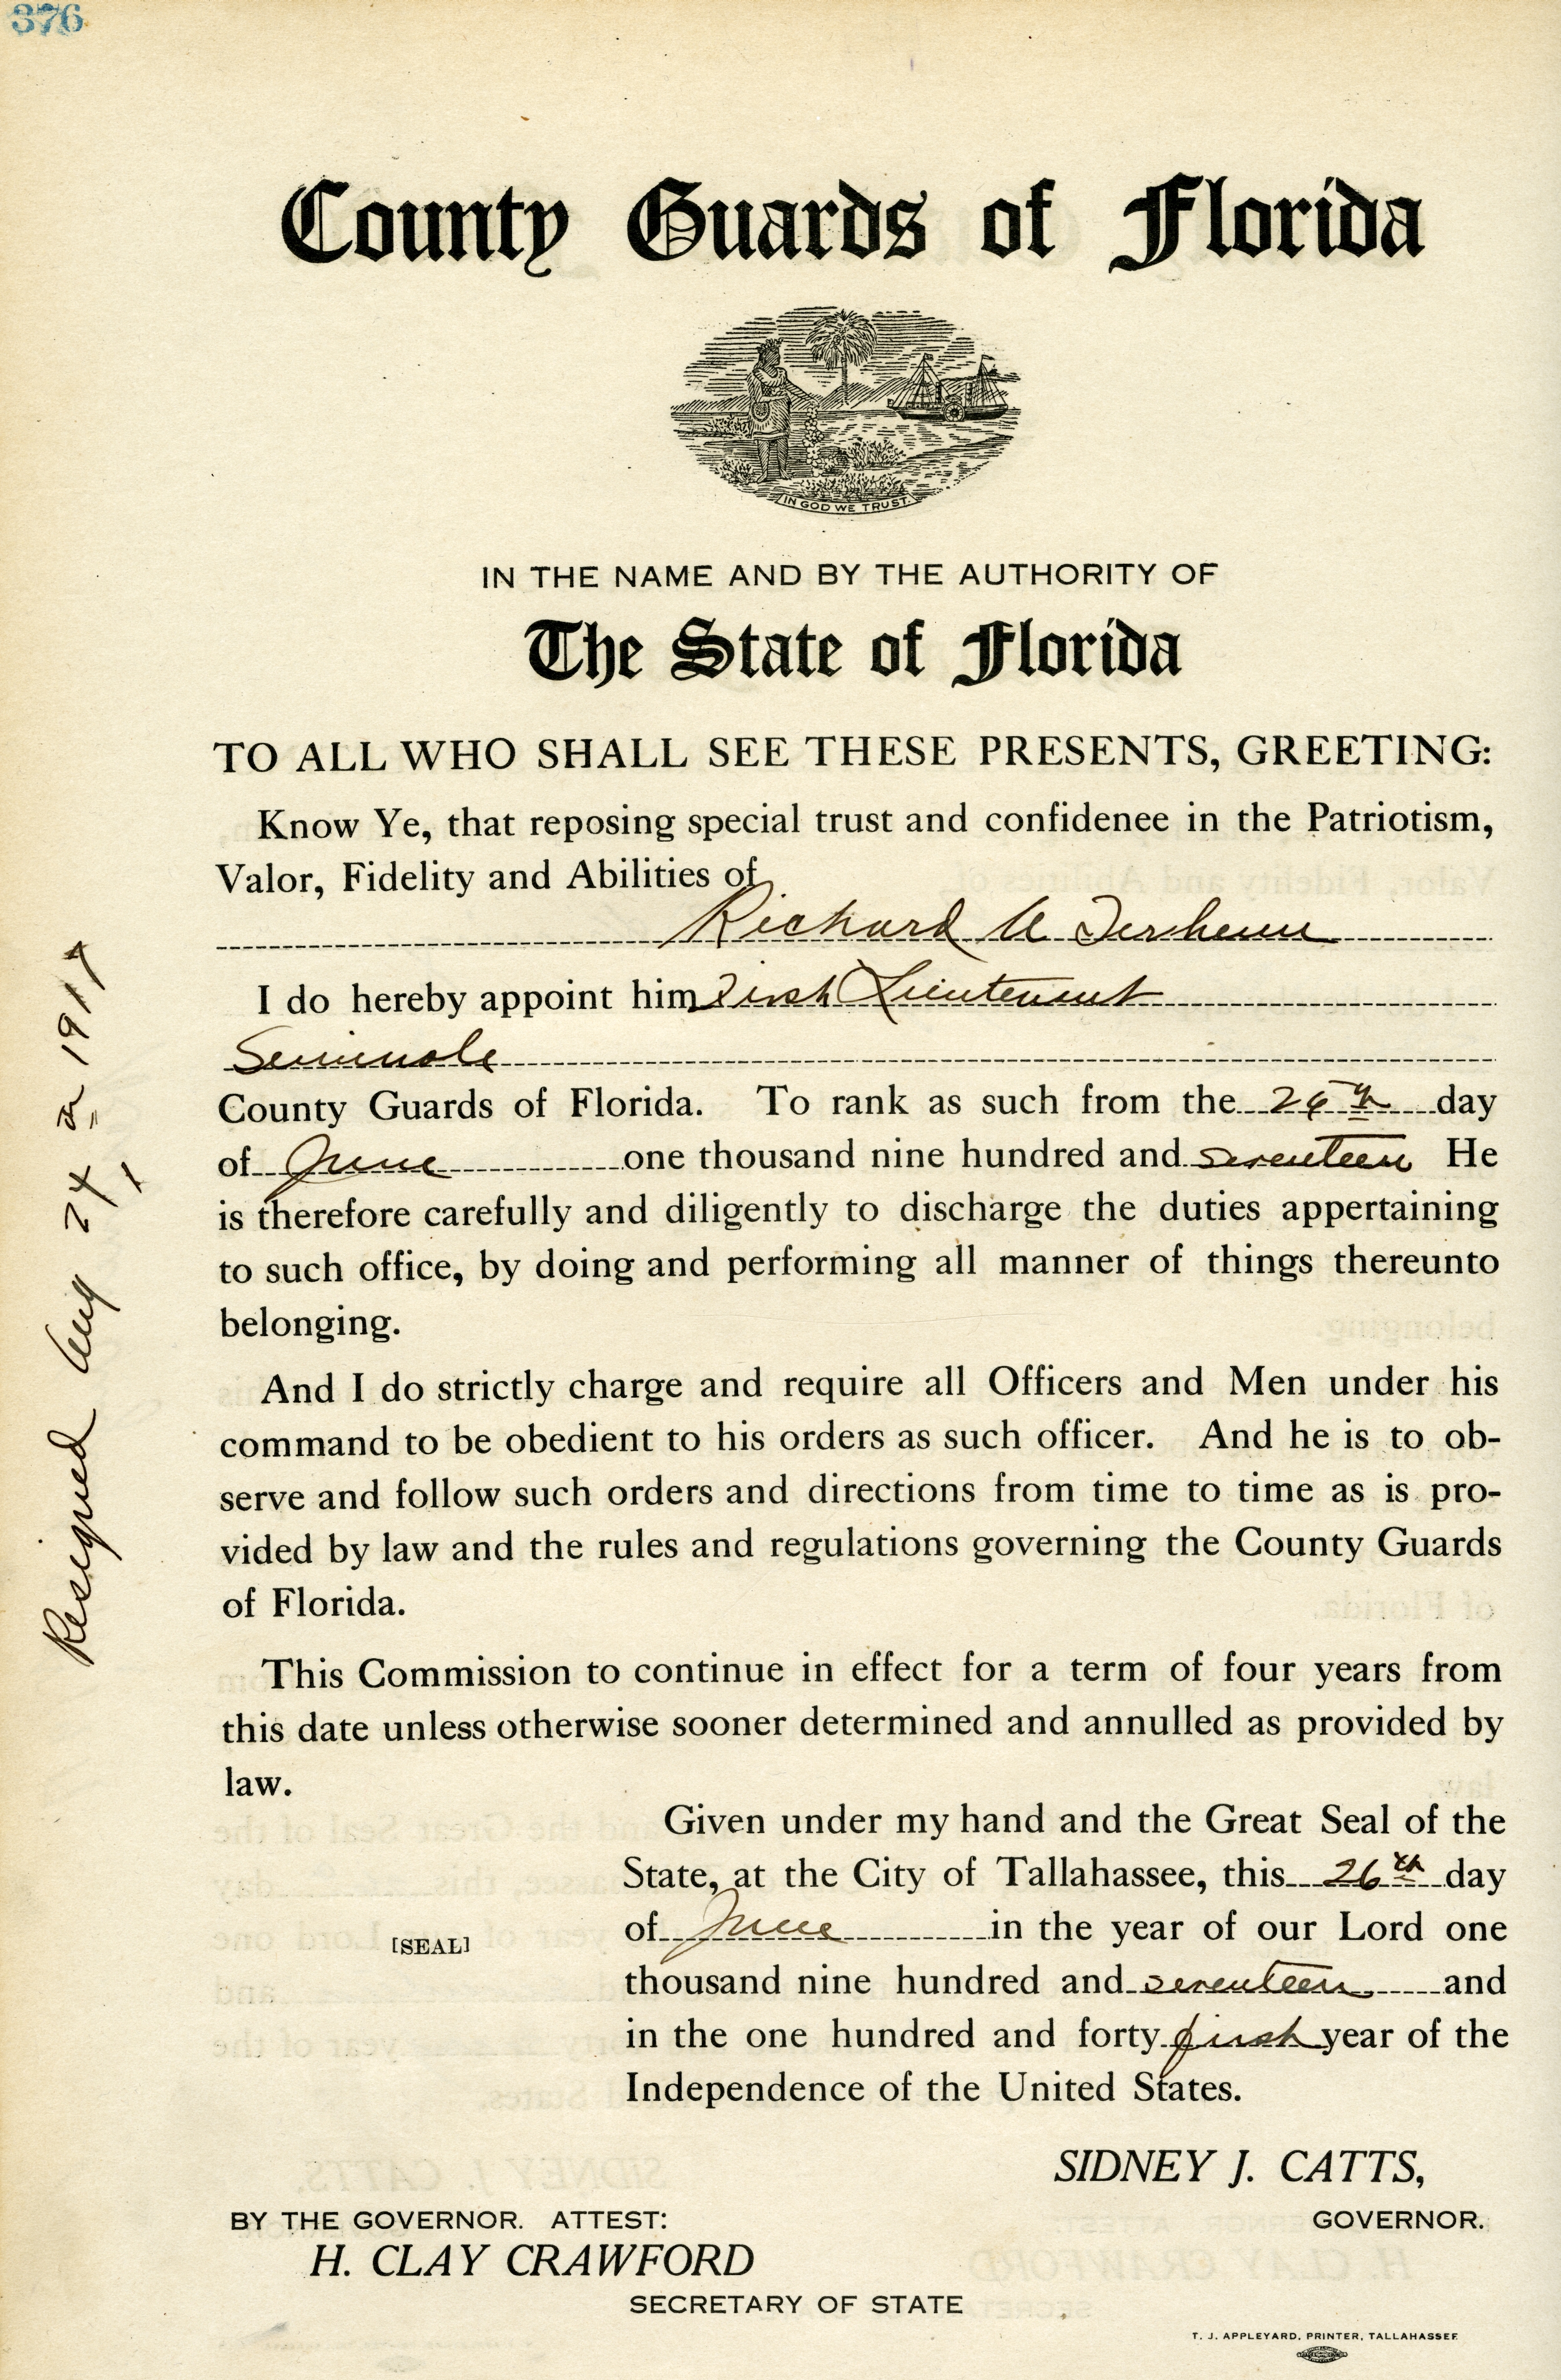 376
County Guards of Florida
IN GOD WE TRUST
IN THE NAME AND BY THE AUTHORITY OF
The State of Florida
TO ALL WHO SHALL SEE THESE PRESENTS, GREETING:
Know Ye, that reposing special trust and confidenee in the Patriotism,
Valor, Fidelity and Abilities of
Richard A Terheun
I do hereby appoint him First Lieutenant
Seminole
County Guards of Florida. To rank as such from the 26th day
of June one thousand nine hundred and seventeen He
is therefore carefully and diligently to discharge the duties appertaining
to such office, by doing and performing all manner of things thereunto
belonging.
And I do strictly charge and require all Officers and Men under his
command to be obedient to his orders as such officer. And he is to ob-
serve and follow such orders and directions from time to time as is pro-
vided by law and the rules and regulations governing the County Guards
of Florida.
This Commission to continue in effect for a term of four years from
this date unless otherwise sooner determined and annulled as provided by
law.
Given under my hand and the Great Seal of the
State, at the City of Tallahassee, this 26th day
of June in the year of our Lord one
[SEAL]
thousand nine hundred and seventeen and
in the one hundred and forty first year of the
Independence of the United States.
SIDNEY J. CATTS,
BY THE GOVERNOR. ATTEST: GOVERNOR.
H. CLAY CRAWFORD
SECRETARY OF STATE
T. J. APPLEYARD, PRINTER, TALLAHASSEE
Resigned Aug 24 1917